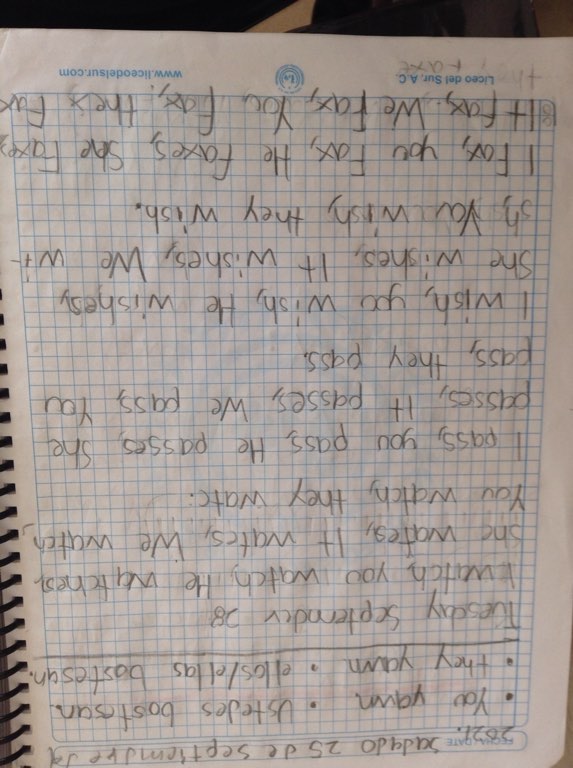 FECHA/DATE sadado 25 de septtiemdre
2021.
• You yawn • Ustedes bostesan
• they yawn • ellos/ellas bostesan.
Tuesday septemder 28
I watch, you watch, He watches,
she wates, It wates, We watch,
You watch, they watc.
I pass, you pass, He passes, she
passes, It passes, We pass, You
pass, they pass
I wish, you wish, He wishes,
she wishes, It wishes, We wi-
sh, You wish, they wish.
I Fax, you Fax, He Faxes, she Faxes
It Fax, We Fax, You Fax, they Fax
Liceo del Sur, A.C. www.liceodelsur.com